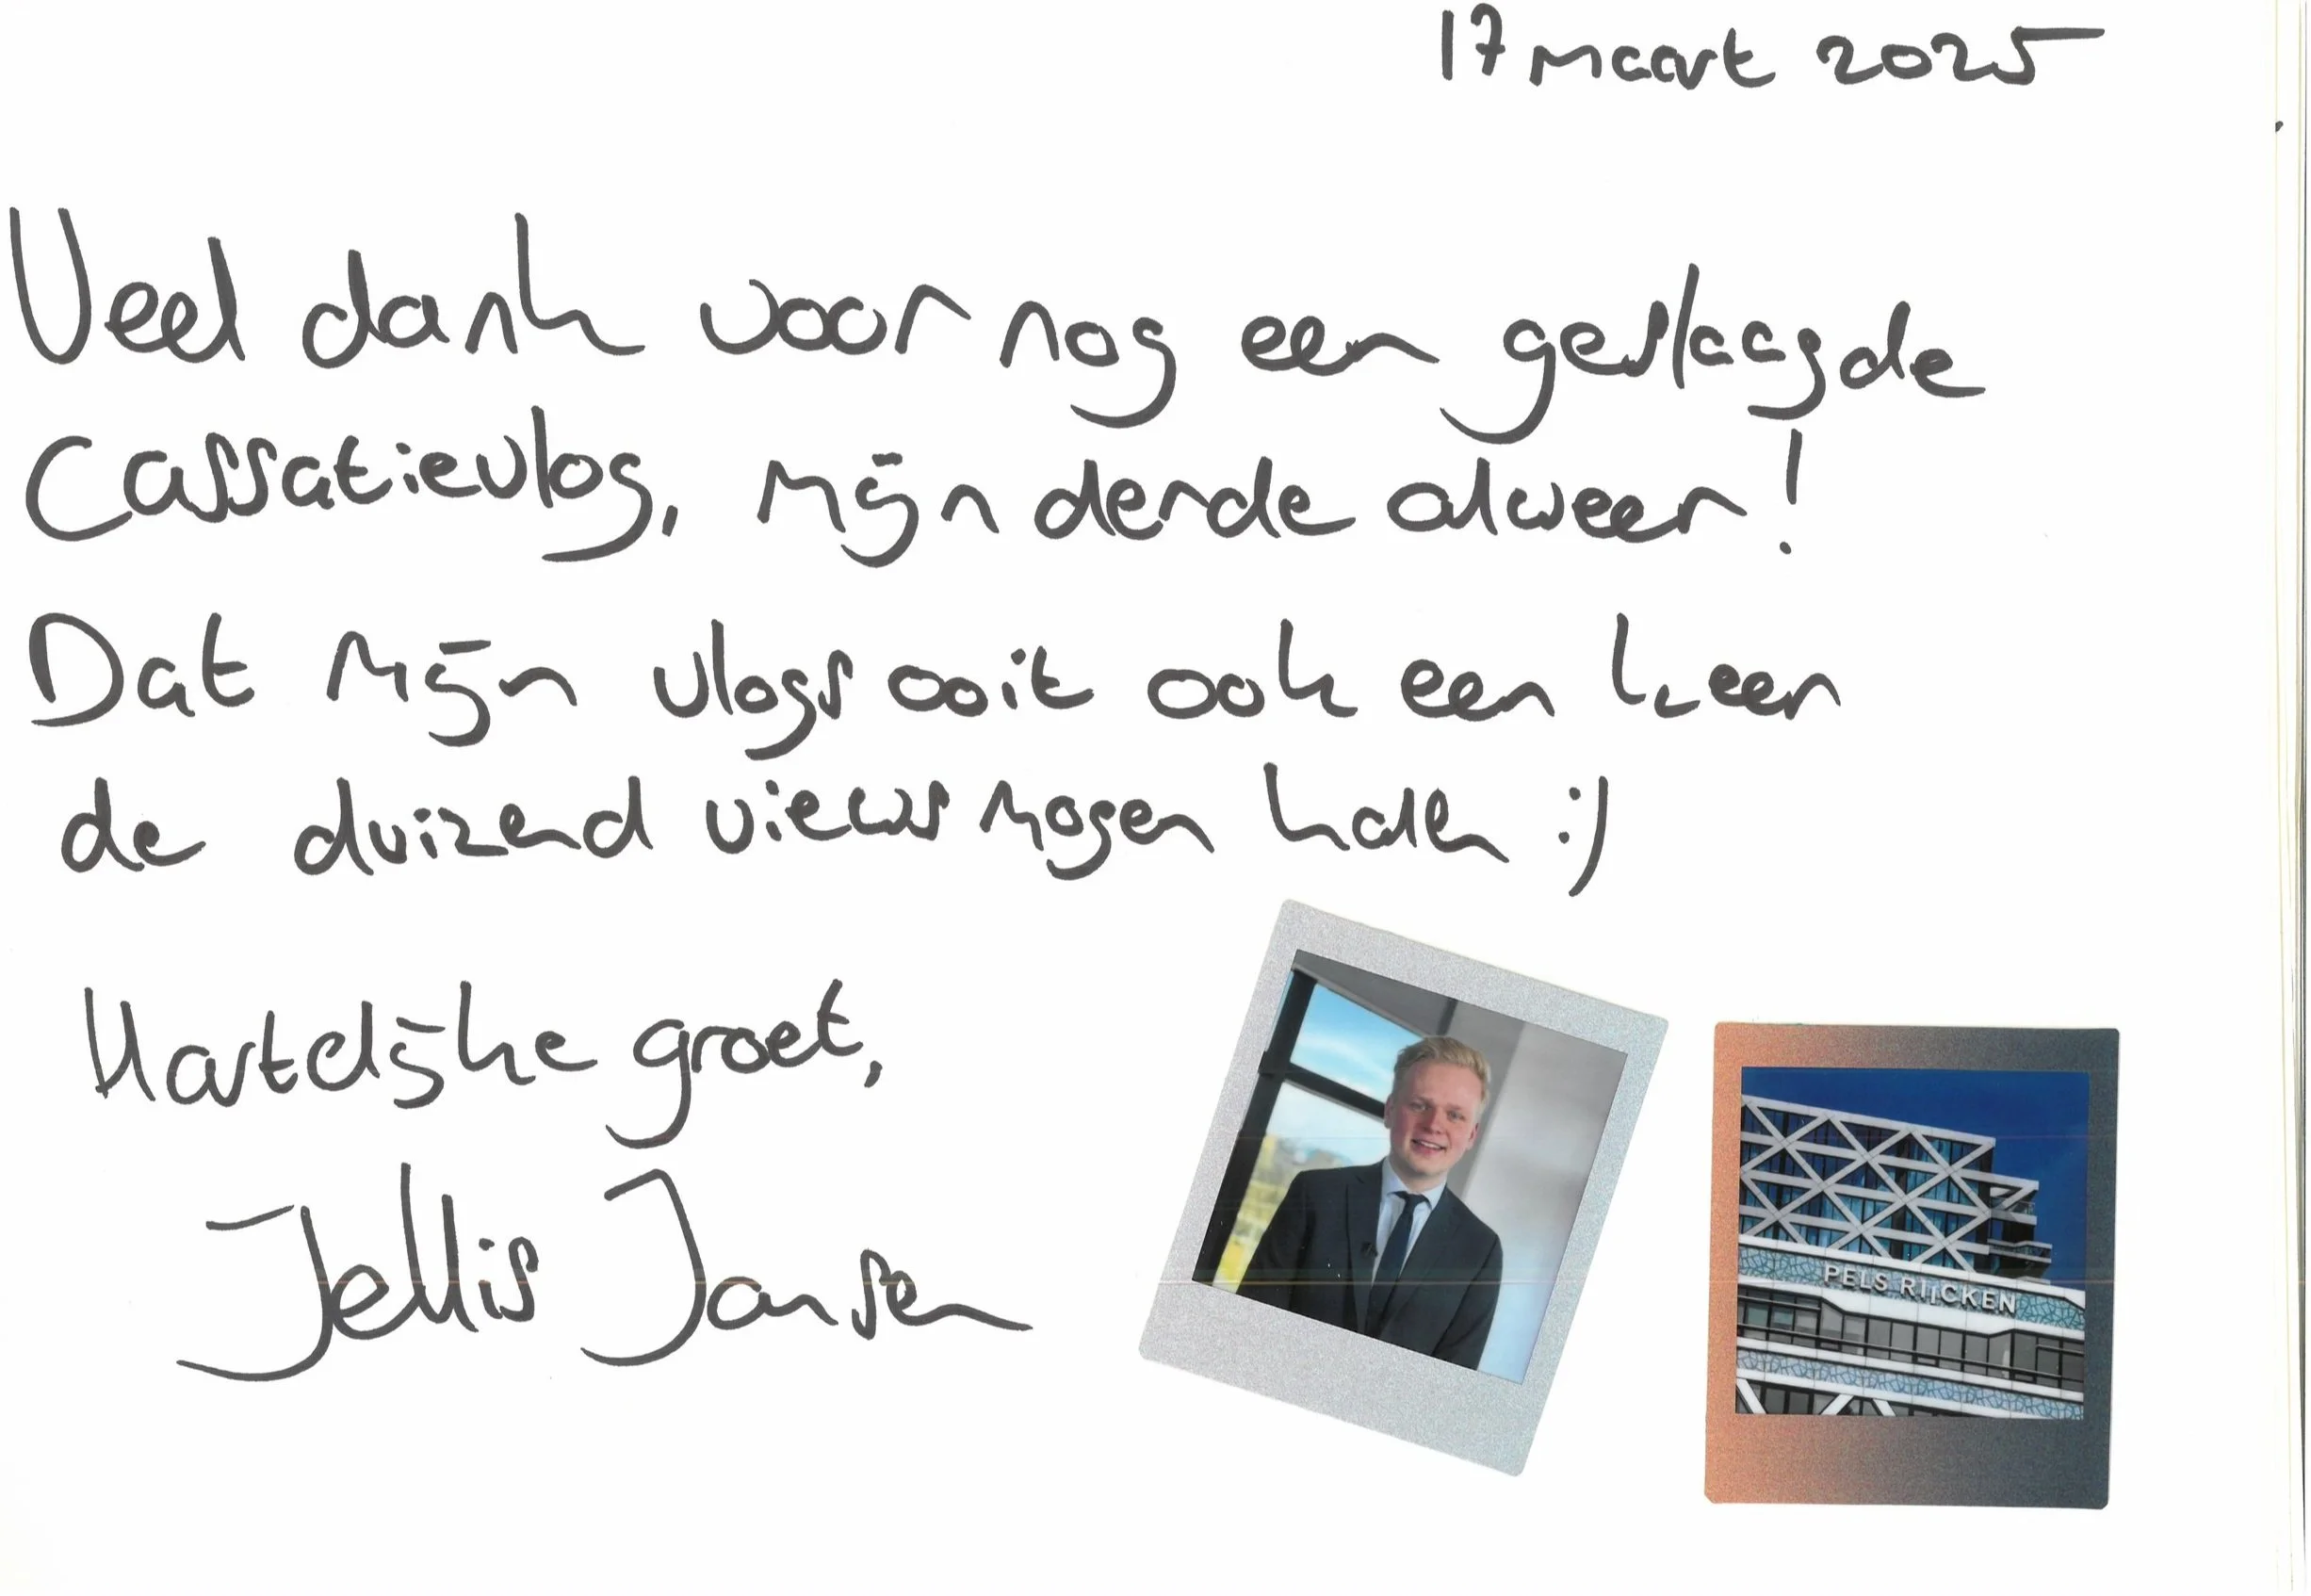 17 maart 2025
Veel dank voor nog een geslaagde
Cassatievlog, mijn derde alweer!
Dat mijn vlogs ooit ook een keer
de duizend views mogen halen :)
Hartelijke groet,
Jellis Jansen
PELS RIJCKEN